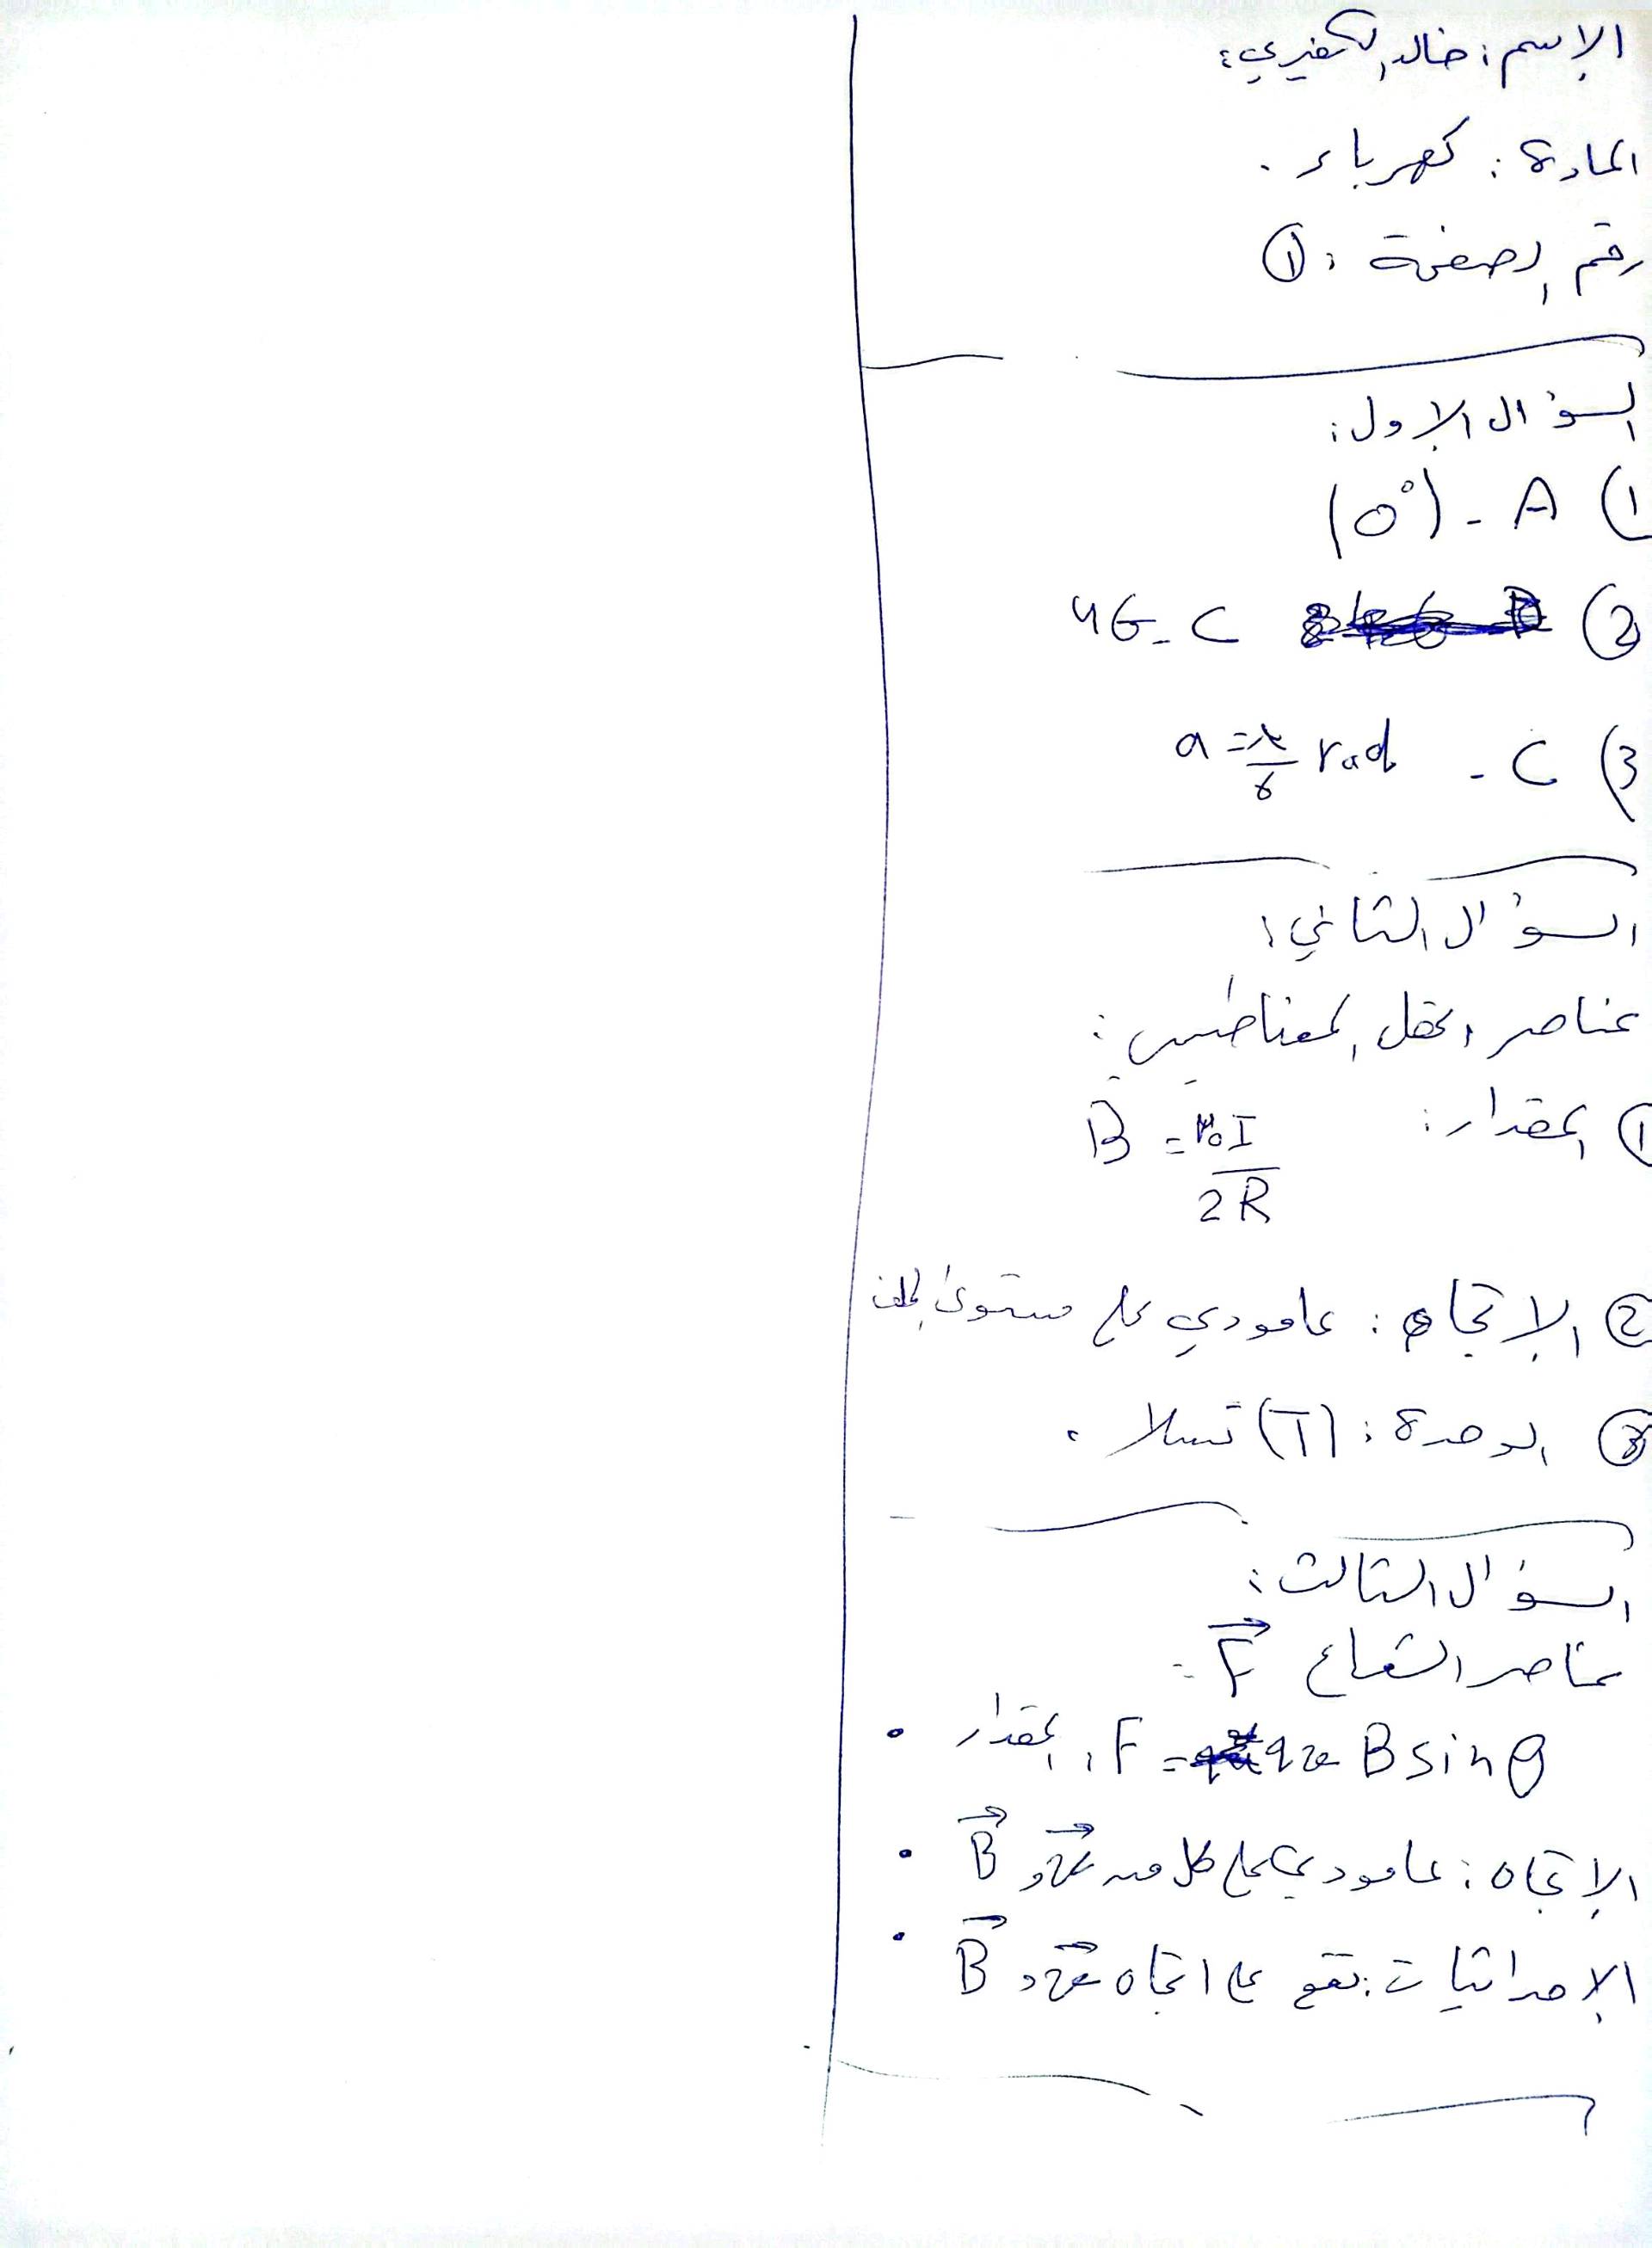 الإسم: خالد الكفيري:
المادة: كهرباء.
رقم الصفحة: ①
السؤال الاول:
1) A - (0°)
2) C - 4G
3) C - a = π/6 rad
السؤال الثاني:
عناصر الحقل المغناطيسي:
① المقدار: B = μ₀I / 2R
② الإتجاه: عامودي على مستوى الملف
③ الوحدة: (T) تسلا.
السؤال الثالث:
عناصر الشعاع F⃗ =
• المقدار، F = qv B sin θ
• الإتجاه: عامودي على كل من v⃗ و B⃗
• الإحداثيات: تقع على اتجاه v⃗ و B⃗